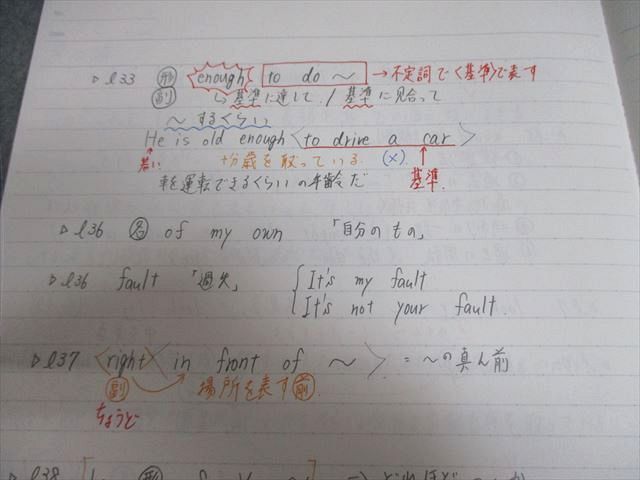 ▷ l33 形 enough to do ～ → 不定詞で〈基準〉で表す
副 ↳ 基準に達して / 基準に見合って
～するくらい
He is old enough 〈to drive a car〉
若い 十分歳を取っている. (×) ↑
車を運転できるくらいの年齢だ 基準.
▷ l36 名 of my own 「自分のもの」
▷ l36 fault 「過失」 { It's my fault
It's not your fault.
▷ l37 〈right〉 in front of ～〉 = ～の真ん前
副 場所を表す前
ちょうど
▷ l38